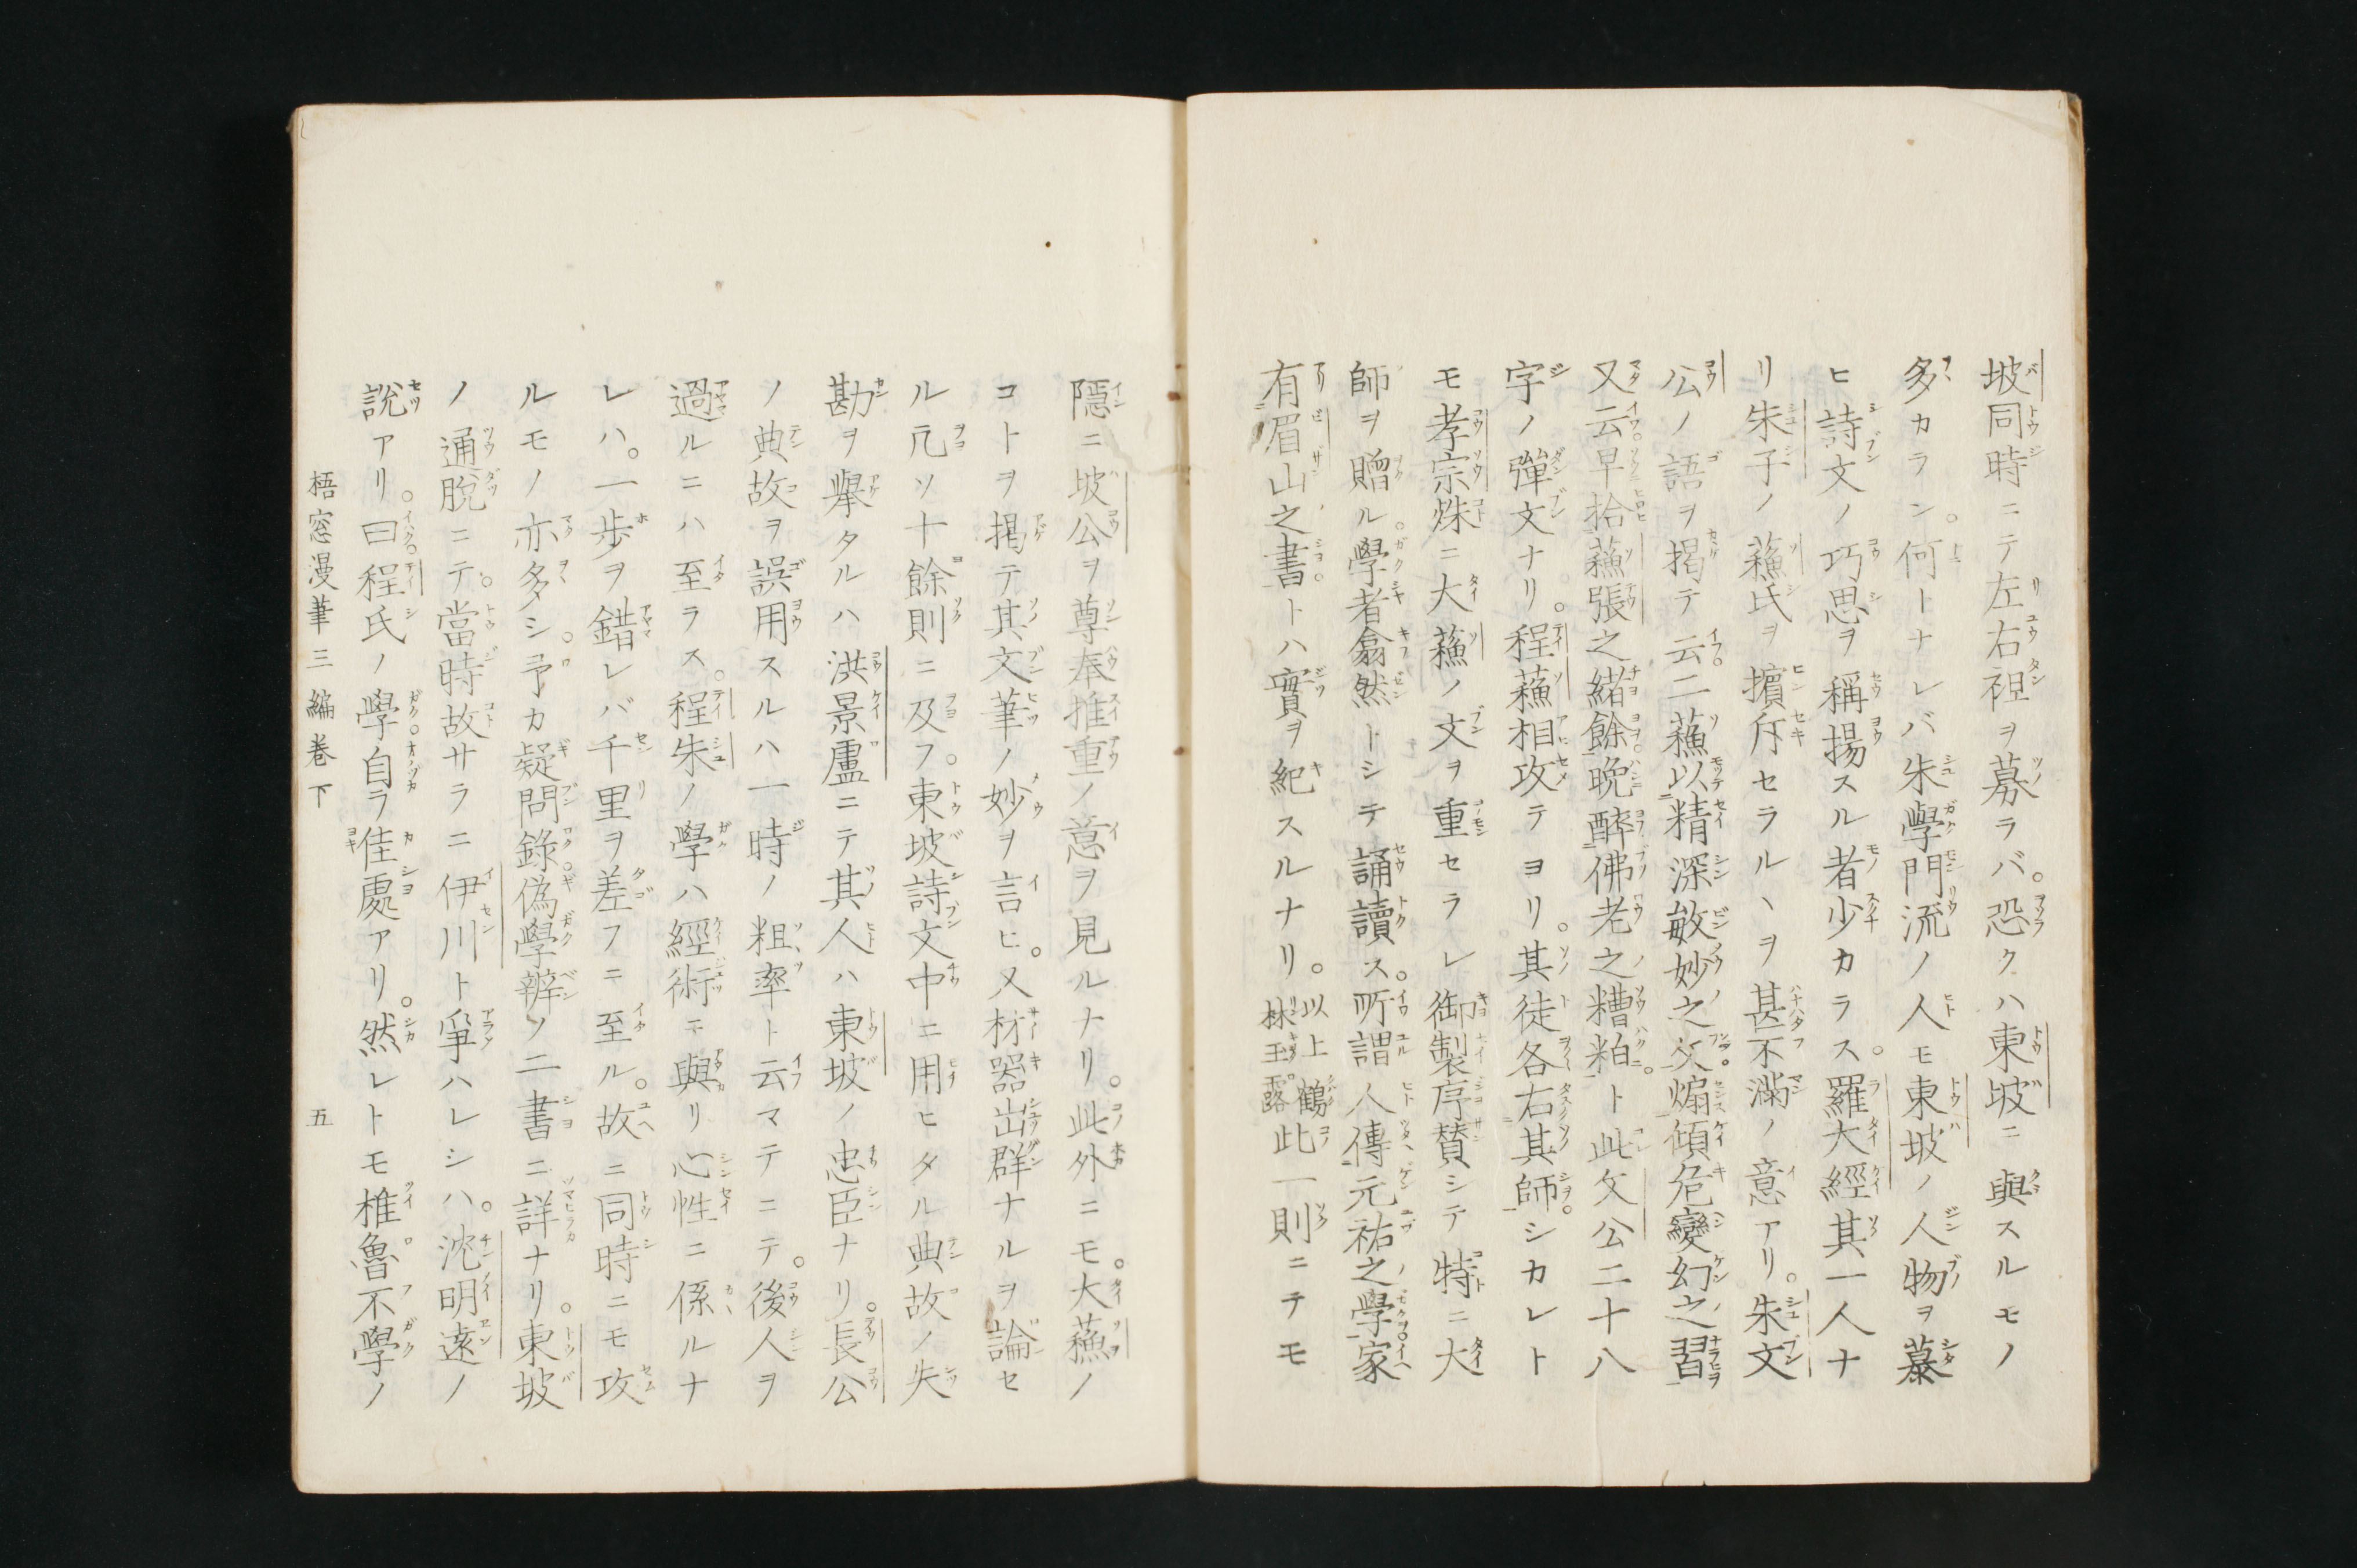 坡同時ニテ左右袒ヲ募ラバ。恐クハ東坡ニ與スルモノ
多カラン。何トナレバ朱學門流ノ人モ東坡ノ人物ヲ慕
ヒ詩文ノ巧思ヲ稱揚スル者少カラス。羅大經其一人ナ
リ朱子ノ蘓氏ヲ擯斥セラルヽヲ甚不滿ノ意アリ。朱文
公ノ語ヲ掲テ云。二蘓以精深敏妙之文。煽傾危變幻之習
又云。早拾蘓張之緒餘。晩醉佛老之糟粕。ト此文公二十八
字ノ彈文ナリ。程蘓相攻テヨリ。其徒各右其師。シカレト
モ孝宗殊ニ大蘓ノ文ヲ重セラレ御製序賛シテ特ニ大
師ヲ贈ル。學者翕然トシテ誦讀ス。所謂人傳元祐之學。家
有眉山之書。トハ實ヲ紀スルナリ。以上鶴林玉露此一則ニテモ
隱ニ坡公ヲ尊奉推重ノ意ヲ見ルナリ。此外ニモ。大蘓ノ
コトヲ掲テ其文筆ノ妙ヲ言ヒ。又材器出群ナルヲ論セ
ル凢ソ十餘則ニ及フ。東坡詩文中ニ用ヒタル典故ノ失
勘ヲ擧タルハ洪景盧ニテ其人ハ東坡ノ忠臣ナリ。長公
ノ典故ヲ誤用スルハ一時ノ粗率ト云マテニテ。後人ヲ
過ルニハ至ラス。程朱ノ學ハ經術ニ與リ心性ニ係ルナ
レハ。一歩ヲ錯レバ千里ヲ差フニ至ル。故ニ同時ニモ攻
ルモノ亦多シ。予カ疑問錄。偽學辨ノ二書ニ詳ナリ。東坡
ノ通脫ニテ。當時故サラニ伊川ト爭ハレシハ。沈明遠ノ
說アリ。曰。程氏ノ學。自ラ佳處アリ。然レトモ椎魯不學ノ
梧窓漫筆三編卷下 五